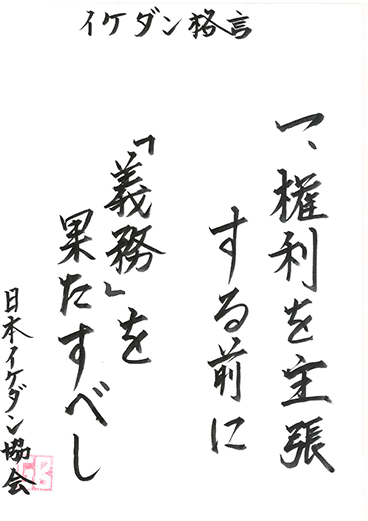 イケダン格言
一、権利を主張
する前に
「義務」を
果たすべし
日本イケダン協会